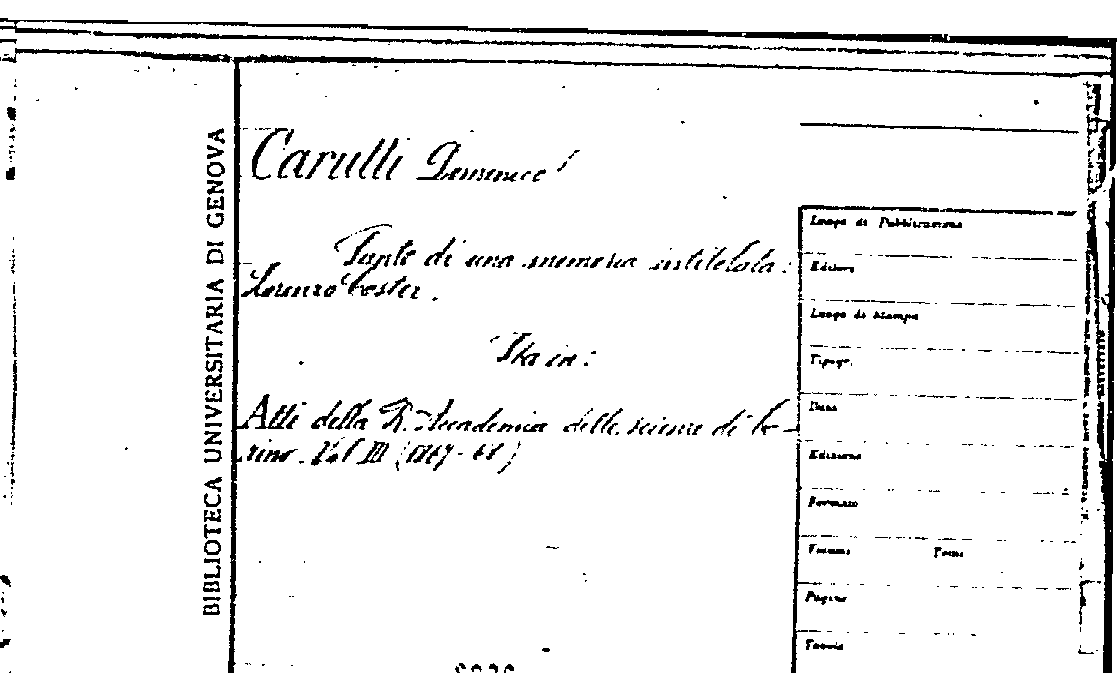 BIBLIOTECA UNIVERSITARIA DI GENOVA
Carutti Domenico
Sunto di una memoria intitolata:
Lorenzo Coster.
Sta in:
Atti della R. Accademia delle scienze di To-
rino. Vol III (1867-68)
Luogo di Pubblicazione
Editore
Luogo di stampa
Tipogr.
Data
Edizione
Formato
Volumi Tomi
Pagine
Tavole